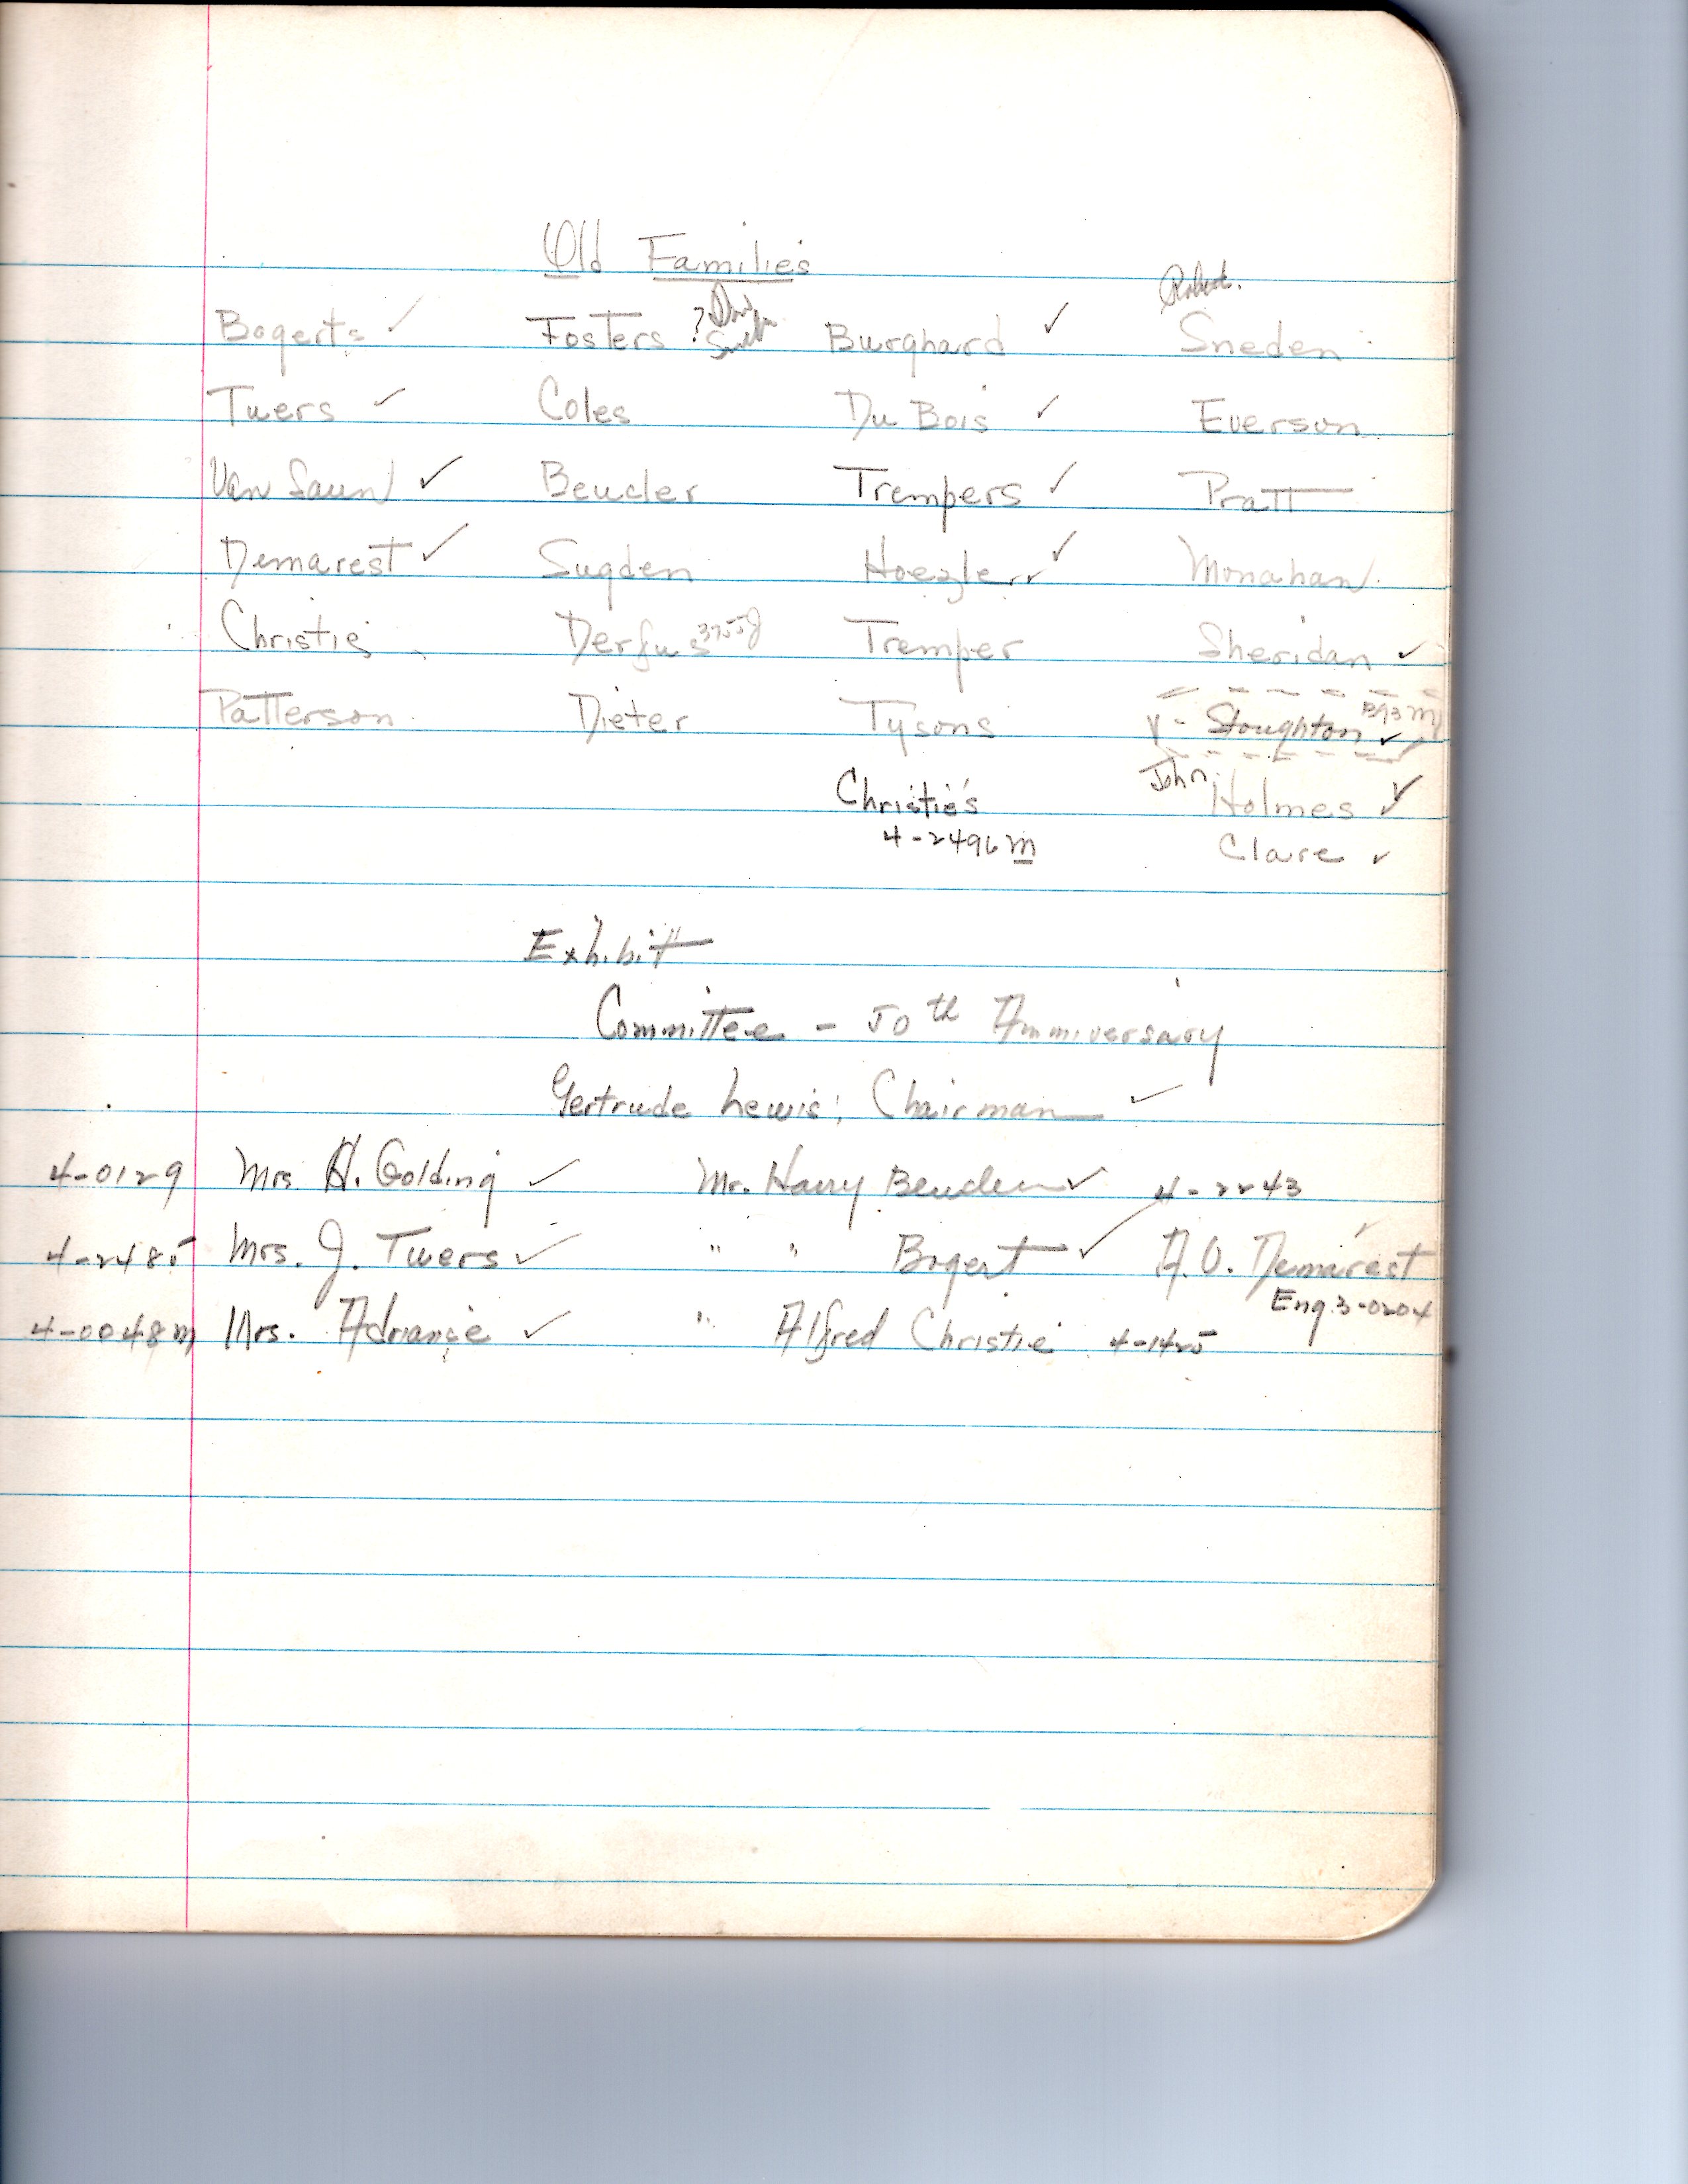 Old Families
Robert.
Bogerts ✓ Fosters ? Burghard ✓ Sneden
Twers ✓ Coles Du Bois ✓ Everson
Van Saun ✓ Beucler Trempers ✓ Pratt
Demarest ✓ Sugden Hoezler ✓ Monahan
Christie Derfus 3755J Tremper Sheridan ✓
Patterson Dieter Tysons Stoughton ✓
Christie's John Holmes ✓
4-2496 m Clare ✓
Exhibit
Committee - 50th Anniversary
Gertrude Lewis, Chairman ✓
4-0129 Mrs. H. Golding ✓ Mr. Harry Beucler ✓ 4-2243
4-2485 Mrs. J. Twers ✓ " " Bogert ✓ A.O. Demarest
Eng 3-0204
4-0048 m Mrs. Adriance ✓ " Alfred Christie 4-1425